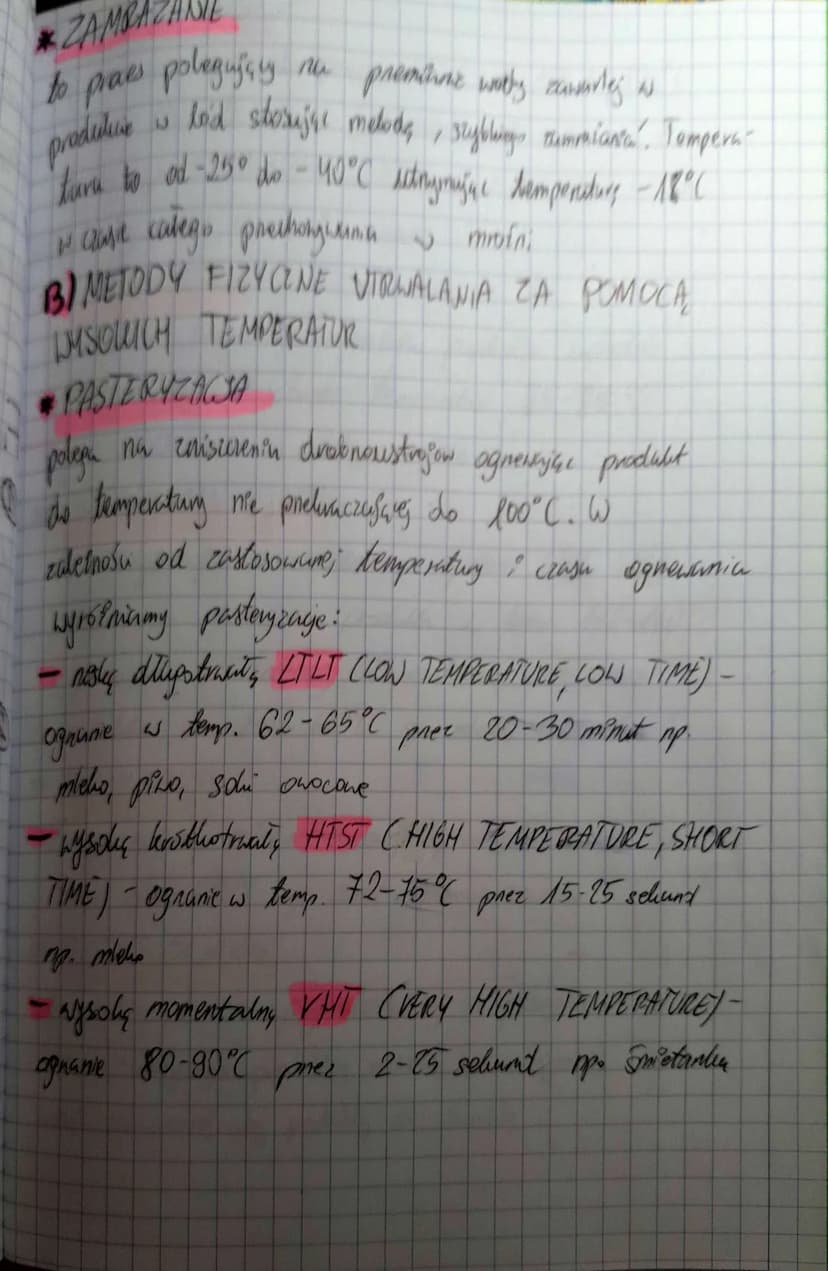 * ZAMRAŻANIE
to proces polegający na przemianie wody zawartej w
produkcie w lód stosując metodę „szybkiego zamrażania”. Tempera-
tura to od -25° do -40°C utrzymując temperaturę -18°C
w czasie całego przechowywania w mroźni
B) METODY FIZYCZNE UTRWALANIA ZA POMOCĄ
WYSOKICH TEMPERATUR
* PASTERYZACJA
polega na zniszczeniu drobnoustrojów ogrzewając produkt
do temperatury nie przekraczającej do 100°C. W
zależności od zastosowanej temperatury i czasu ogrzewania
wyróżniamy pasteryzację:
- niską długotrwałą LTLT (LOW TEMPERATURE, LOW TIME) -
ogrzanie w temp. 62-65°C przez 20-30 minut np.
mleko, piwo, soki owocowe
- wysoką krótkotrwałą HTST (HIGH TEMPERATURE, SHORT
TIME) - ogrzanie w temp. 72-75°C przez 15-25 sekund
np. mleko
- wysoką momentalną VHT (VERY HIGH TEMPERATURE) -
ogrzanie 80-90°C przez 2-25 sekund np. śmietanka